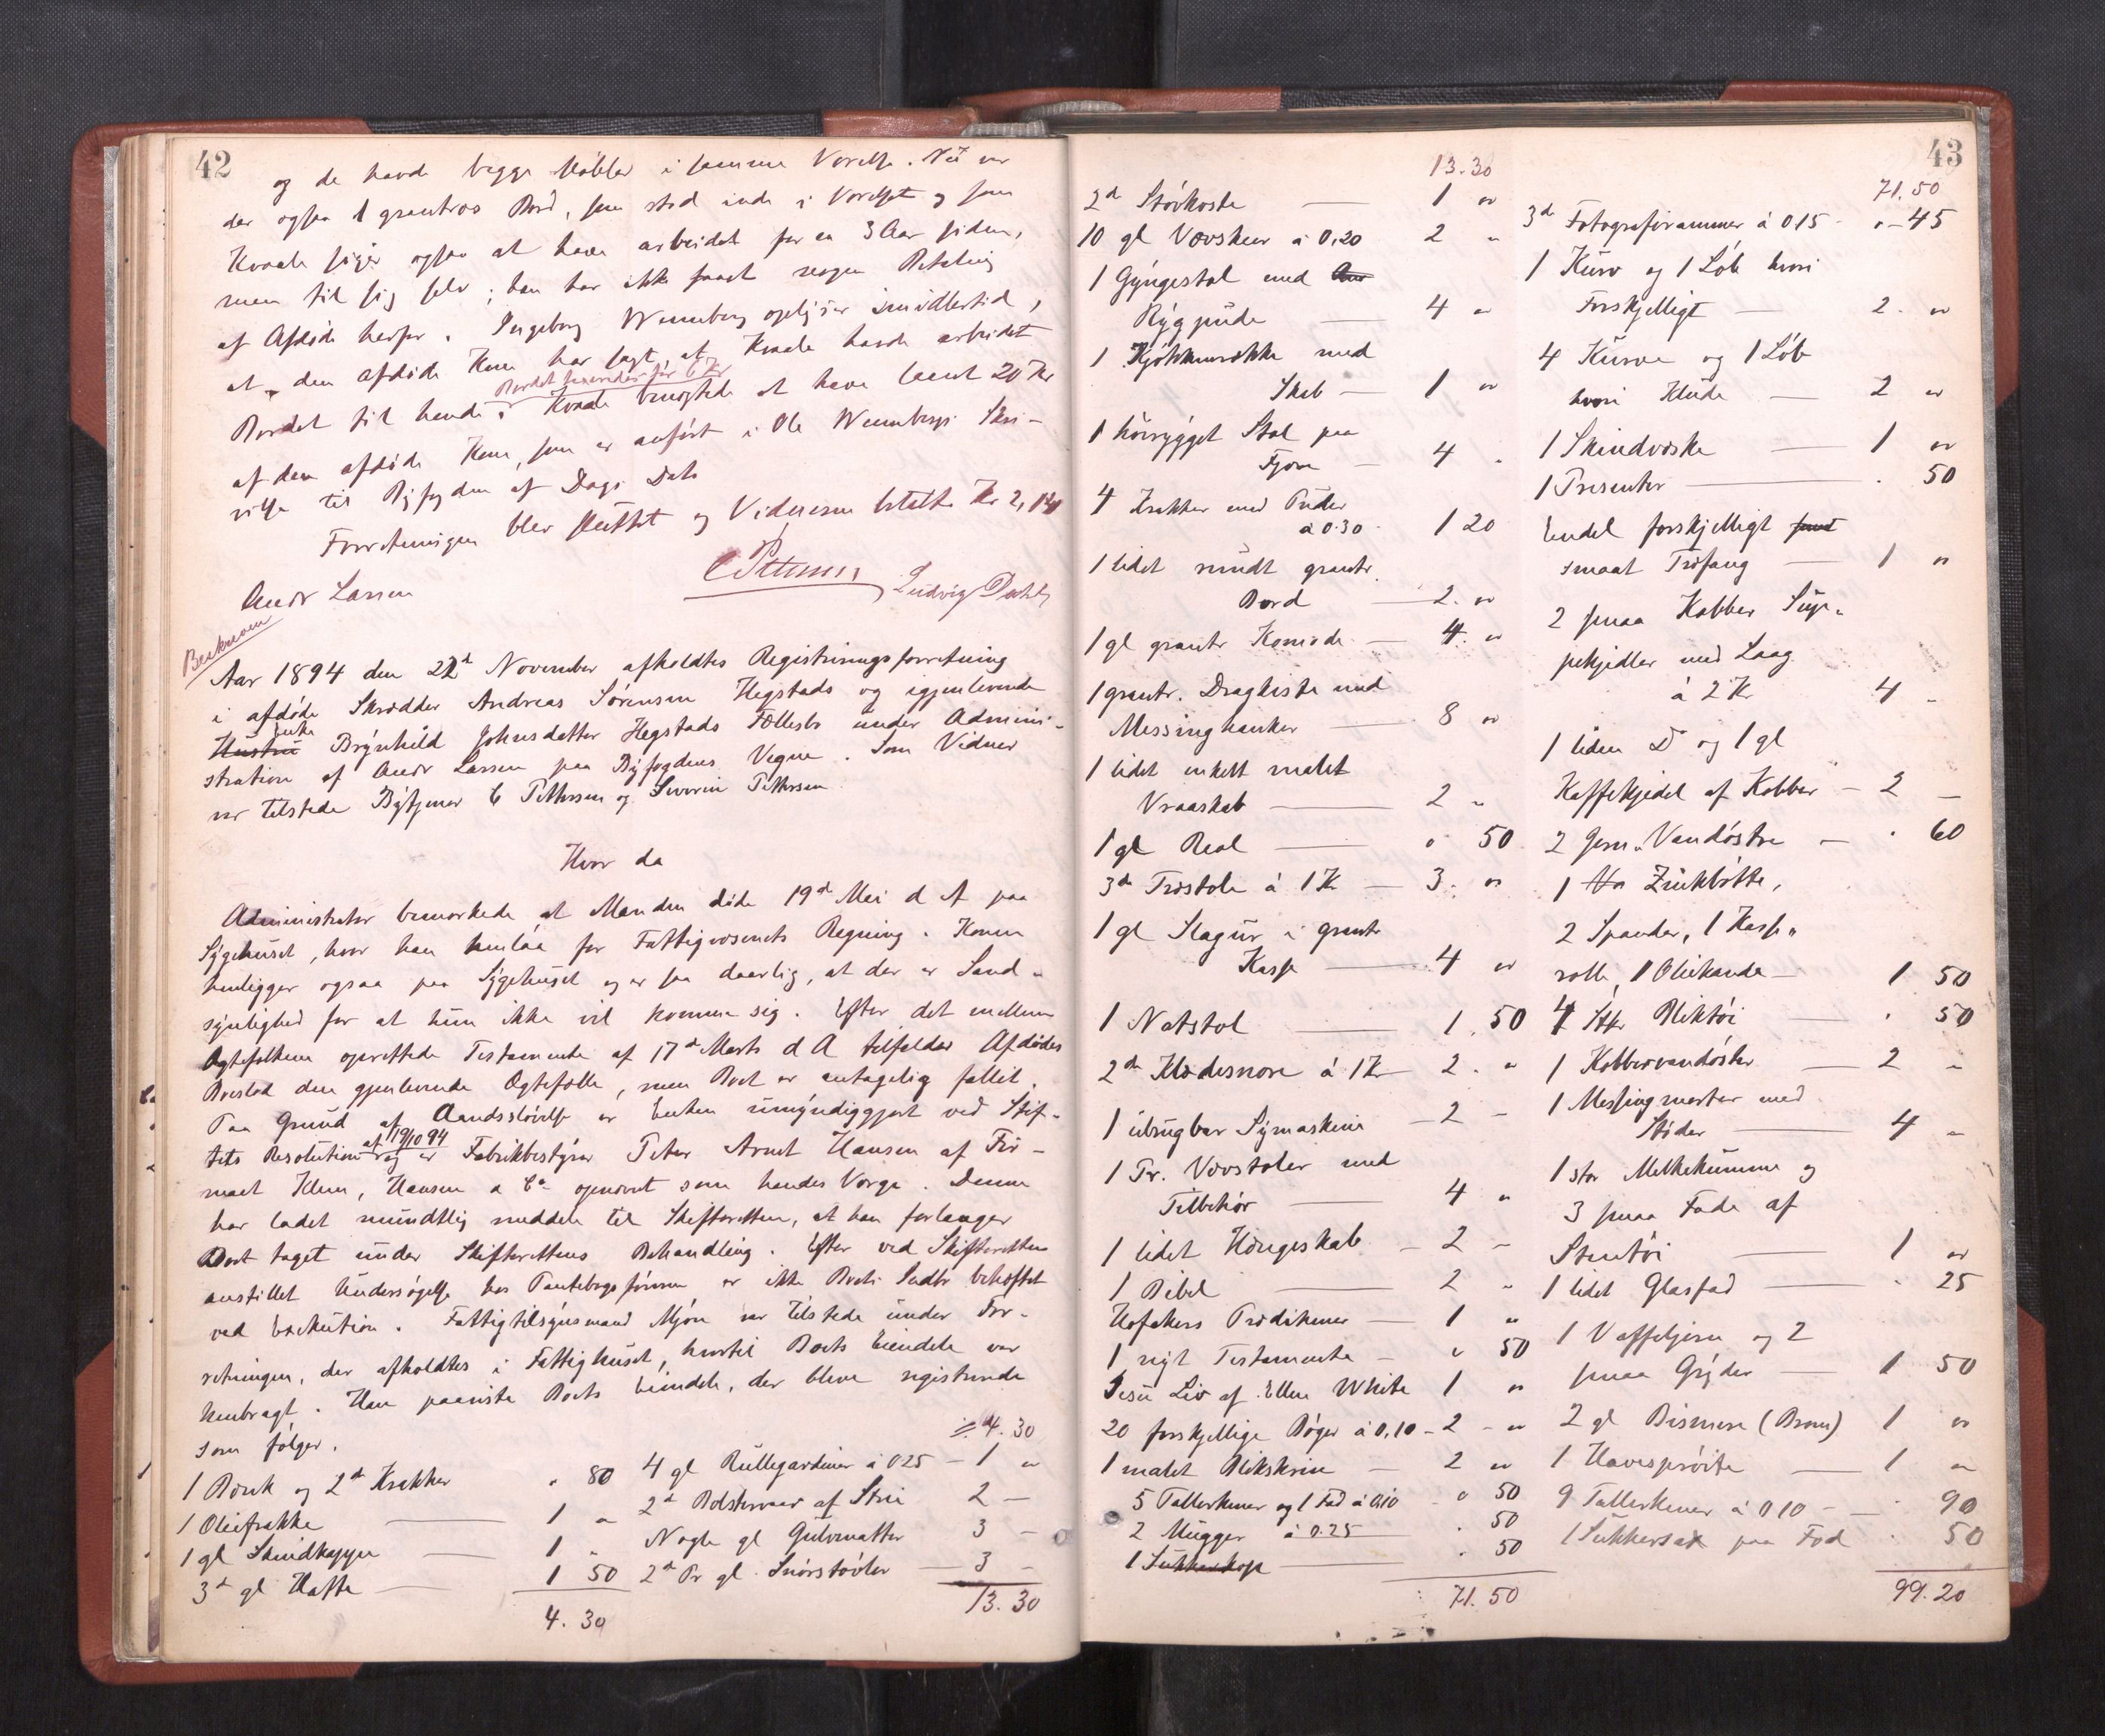 42
og de havde begge Møbler i samme Værelse. Nu var
der ogsaa 1 grantræs Bord, som stod inde i Værelset og som
Kvaale siger ogsaa at have arbeidet for ca 3 Aar siden,
men til sig selv; han har ikke faaet nogen Betaling
af Afdøde herfor. Ingeborg Wenneberg oplyser imidlertid,
at den afdøde Kone har sagt, at Kvaale havde arbeidet
Bordet vurderes for 6 Kr
Bordet til hende. Kvaale benægtede at have laant 20 Kr
af den afdøde Kone, som er anført i Ole Wennebergs Skri-
velse til Byfogden af Dags Dato
Forretningen blev sluttet og Vidnerne betalte Kr 2,
Andr Larsen
C Pettersen
Ludvig Dahl
Beskreven
Aar 1894 den 22d November afholdtes Registreringsforretning
i afdøde Skrædder Andreas Sørensen Hegstads og igjenlevende
Enke
Hustru Brynhild Johnsdatter Hegstads Fællesbo under Admini-
stration af Andr Larsen paa Byfogdens Vegne. Som Vidner
var tilstede Bytjener C Pettersen og Severin Pettersen.
Hvor da
Administrator bemærkede at Manden døde 19d Mai d A paa
Sygehuset, hvor han henlaa for Fattigvæsenets Regning. Konen
henligger ogsaa paa Sygehuset og er saa daarlig, at der er Sand-
synlighed for at hun ikke vil komme sig. Efter det mellem
Ægtefolkene oprettede Testamente af 17d Marts d A tilfalder Afdødes
Boeslod den gjenlevende Ægtefælle, men Boet er antagelig fallit.
Paa Grund af Aandssløvelse er Enken umyndiggjort ved Stif-
af 19/10 94
tets Resolution og er Fabrikbestyrer Peter Arnt Hansen af Fir-
maet Klem, Hansen & Co opnævnt som hendes Værge. Denne
har ladet mundtlig meddele til Skifteretten, at han forlanger
Boet taget under Skifterettens Behandling. Efter ved Skifteretten
anstillet Undersøgelse hos Pantebogsføreren er ikke Boets Indbo behæftet
ved Exekution. Fattigtilsynsmand Mjøen var tilstede under For-
retningen, der afholdtes i Fattighuset, hvortil Boets Eiendele var
henbragt. Han paaviste Boets Eiendele, der bleve registrerede
som følger.
1 Bænk og 2d Krakker " 80
1 Oliefrakke — 1 "
1 gl Skindkappe — 1 "
3d gl Hatte — 1 50
4. 30
4. 30
4 gl Rullegardiner à 0 25 — 1 "
2d Bolstervaar af Strie 2 —
Nogle gl Gulvmatter 3 —
2d Pr gl. Snørstøvler — 3 —
13. 30
43
13.30
2d Støvkoste — 1 "
10 gl Vævskeer à 0,20 2 "
1 Gyngestol med
Rygpude — 4 "
1 Kjøkkenrække med
Skab — 1 "
1 høirygget Stol paa
Fjære — 4 "
4 Krakker med Puder
à 0.30 1 20
1 lidet rundt grantr.
Bord — 2. "
1 gl grantr Komode — 4. "
1 grantr. Dragkiste med
Messinghanker — 8 "
1 lidet enkelt malet
Vraaskab — 2 "
1 gl Reol — " 50
3de Træstole à 1 Kr — 3. "
1 gl Slagur i grantr
Kasse — 4 "
1 Natstol — 1. 50
2de Klædesnore à 1 Kr — 2. "
1 ubrugbar Symaskine — 2 —
1 Pr. Vævstoler med
Tilbehør — 4 "
1 lidet Hængeskab — 2 —
1 Bibel — 2 "
Hofakers Prædikener — 1 "
1 nyt Testamente — " 50
Jesu Liv af Ellen White 1 "
20 forskjellige Bøger à 0,10 — 2 — "
1 malet Blikskrin — 2 "
5 Tallerkener og 1 Fad à 0.10 " 50
2 Mugger à 0.25 — . 50
1 Sukkerkop — . 50
71. 50
71.50
3de Fotografirammer à 0 15 " — 45
1 Kurv og 1 Løb hvori
Forskjelligt — 2. "
4 Kurve og 1 Løb
hvori Klude — 2 "
1 Skindvæske — 1 "
1 Presenter — . 50
Endel forskjelligt smat
smaat Træfang — 1 "
2 smaa Kobber Sup-
pekjedler med Laag
à 2 Kr 4 —
1 liden Do og 1 gl
Kaffekjedel af Kobber — 2 —
2 Jern-Vandøstre — . 60
1 Zinkbøtte,
2 Spander, 1 Kasse-
rolle, 1 Oliekande — 1 50
4 Stkr Bliktøi — . 50
1 Kobbervandøster — 2 —
1 Messingmorter med
Støder — 4 —
1 stor Melkekumme og
3 smaa Fade af
Stentøi — 1 "
1 lidet Glasfad — . 25
1 Vaffeljern og 2
smaa Gryder — 1 50
2 gl Bismere (Bronce) 1 "
1 Havesprøite — 1 "
9 Tallerkener à 0 10 — . 90
1 Sukkersax paa Fod . 50
99.20